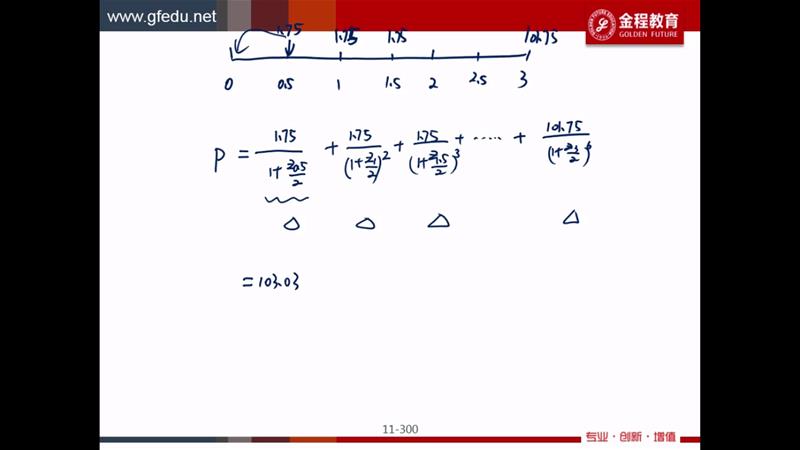 www.gfedu.net
金程教育
GOLDEN FUTURE
1.75 1.75 1.75 101.75
0 0.5 1 1.5 2 2.5 3
P = 1.75/(1+z0.5/2) + 1.75/(1+z1/2)^2 + 1.75/(1+z1.5/2)^3 + ...... + 101.75/(1+z3/2)^6
=103.03
11-300
专业·创新·增值